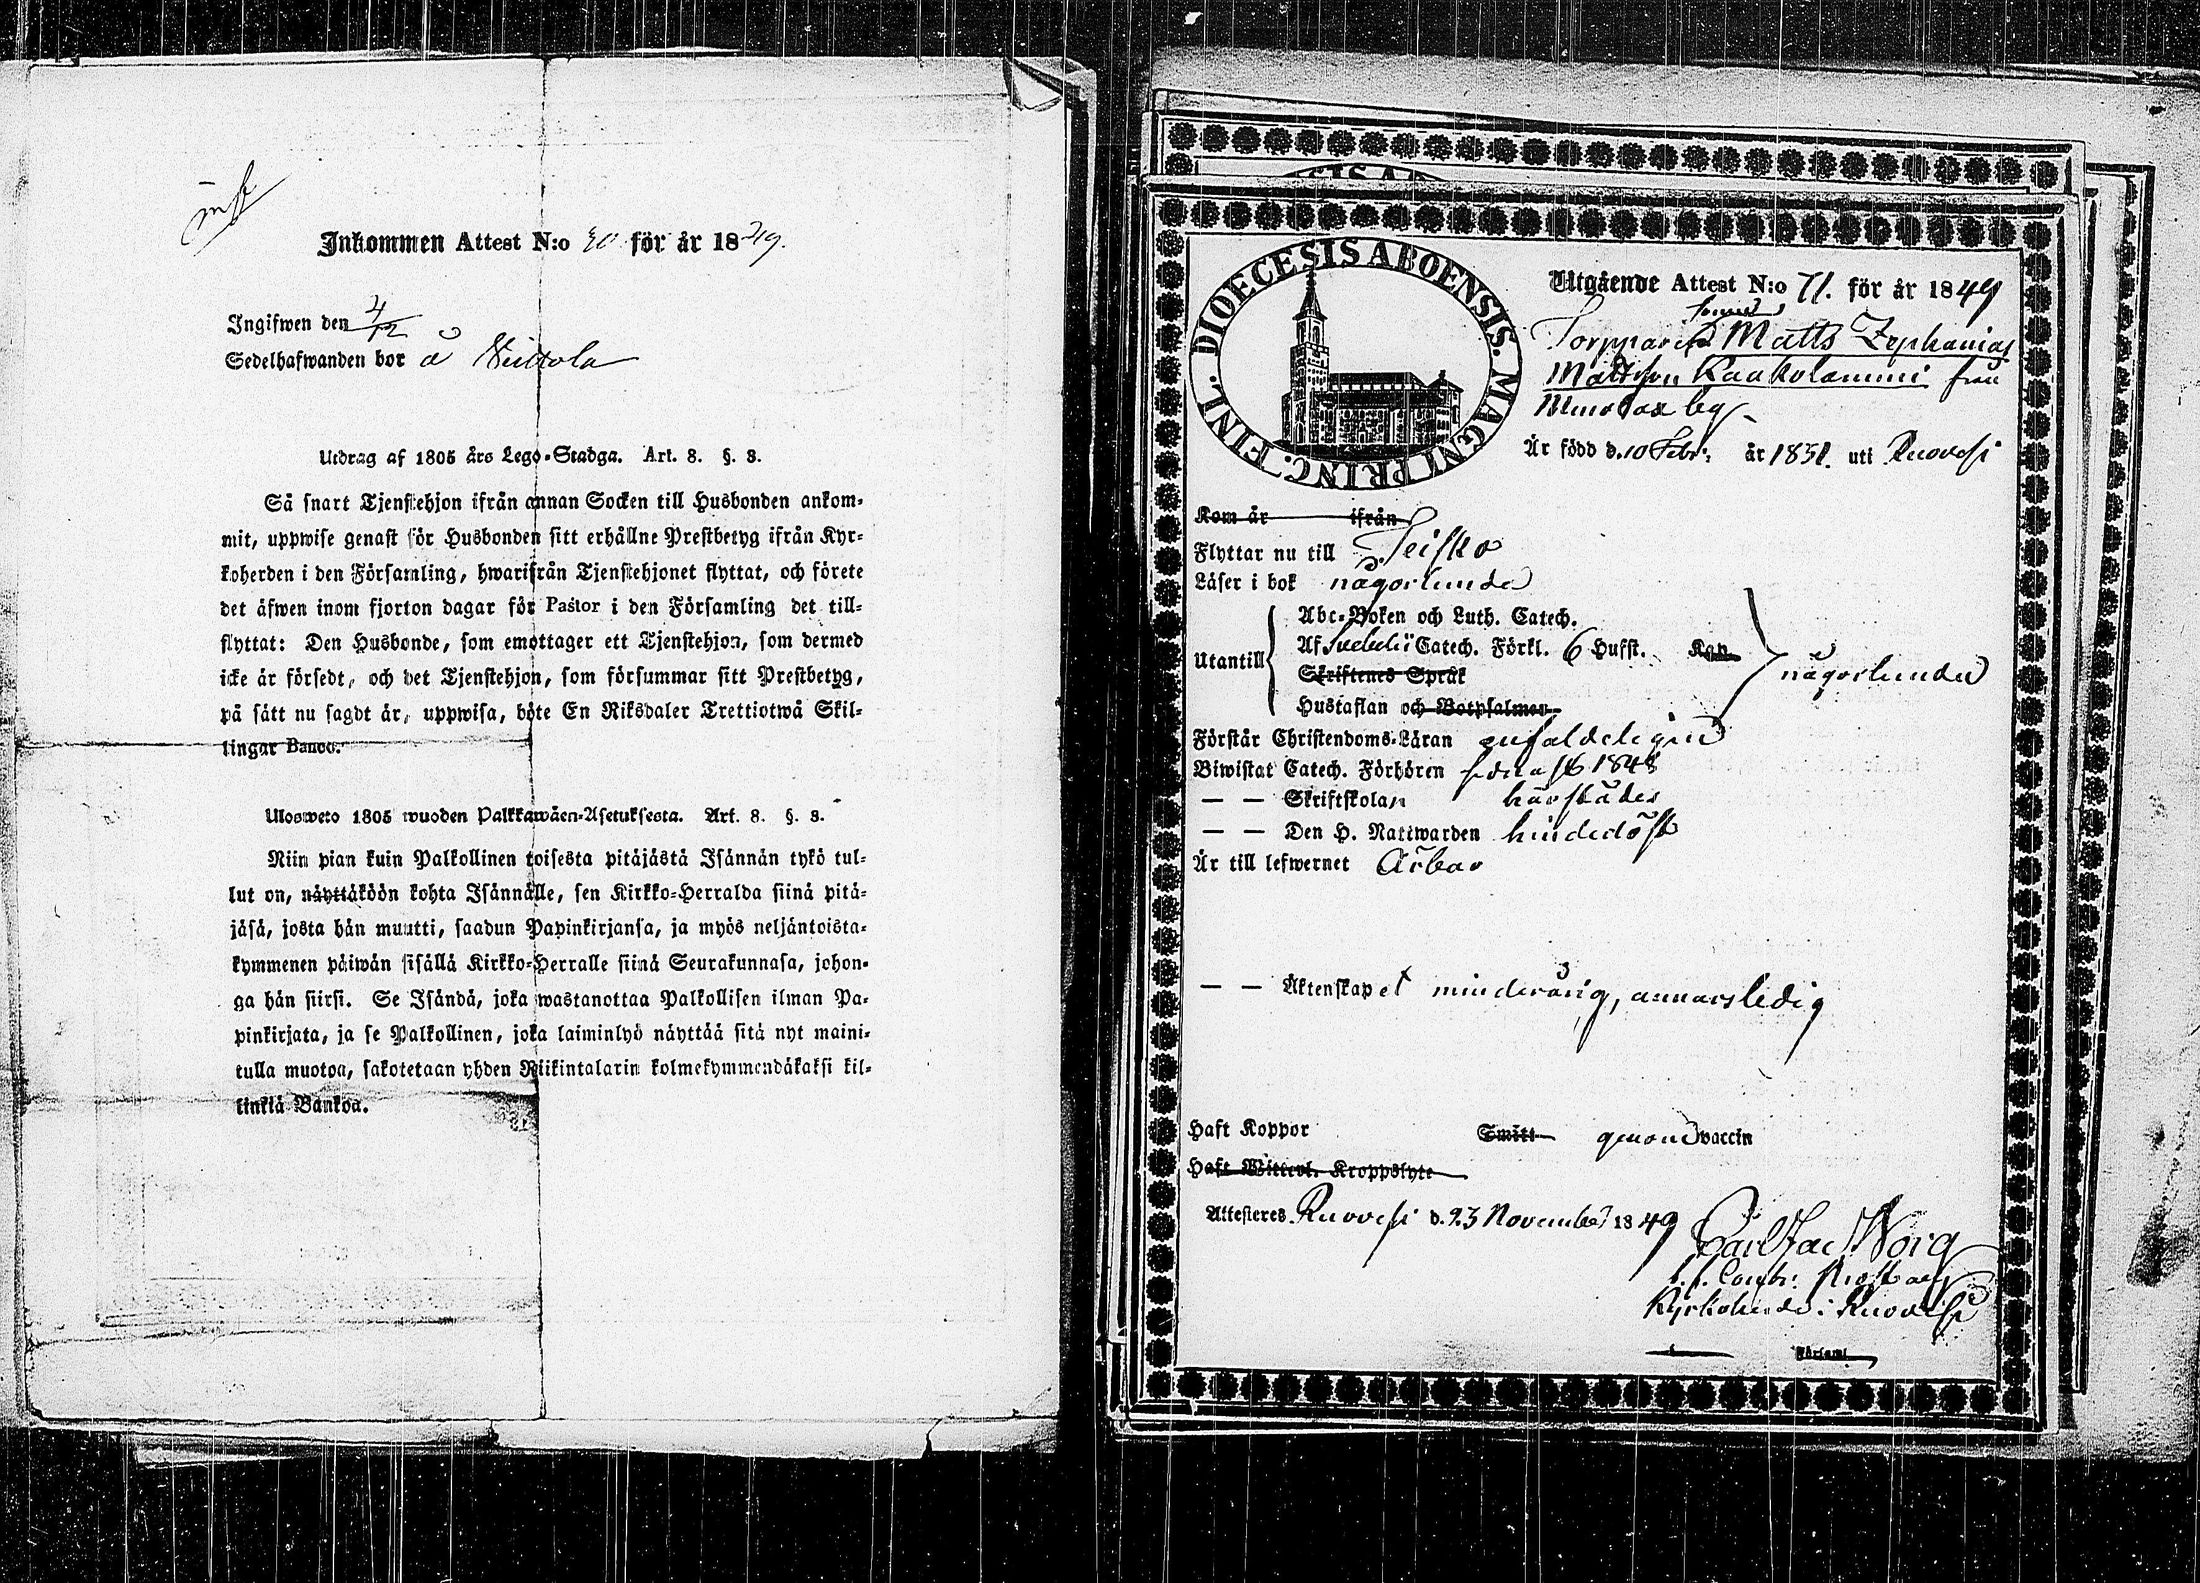 Inkommen Attest N:o för år 1849.
Ingifwen den 4/12
Sedelhafwanden bor å
Utdrag af 1805 års Lego-Stadga. Art. 8. §. 3.
Så snart Tjenstehjon ifrån annan Socken till Husbonden ankom-
mit, uppwise genast för Husbonden sitt erhållne Prestbetyg ifrån Kyr-
koherden i den Församling, hwarifrån Tjenstehjonet flyttat, och förete
det äfwen inom fjorton dagar för Pastor i den Församling det till-
flyttat: Den Husbonde, som emottager ett Tjenstehjon, som dermed
icke är försedt, och det Tjenstehjon, som försummar sitt Prestbetyg,
på sätt nu sagdt är, uppwisa, böte En Riksdaler Trettiotwå Skil-
lingar Banco.
Ulosweto 1805 wuoden Palkkawäen-Asetuksesta. Art. 8. §. 3.
Niin pian kuin Palkollinen toisesta pitäjästä Isännän tykö tul-
lut on, näyttäköön kohta Isännälle, sen Kirkko-Herralda siinä pitä-
jäsä, josta hän muutti, saadun Papinkirjansa, ja myös neljäntoista-
kymmenen päiwän sisällä Kirkko-Herralle siinä Seurakunnasa, johon-
ga hän siirsi. Se Isändä, joka wastanottaa Palkollisen ilman Pa-
pinkirjata, ja se Palkollinen, joka laiminlyö näyttää sitä nyt maini-
tulla muotoa, sakotetaan yhden Riikintalarin kolmekymmendäkaksi kil-
linkiä Bankoa.
DIOECESIS ABOENSIS. MAGNI PRINC. FINL.
Utgående Attest N:o 71. för år 1849
sonen
Torppare Matts Zephanias
Mattsson Kaakolammi från
by
Är född d. 10 Febr. år 1831. uti Ruovesi
Kom år ifrån
Flyttar nu till Teisko
Läser i bok någorlunda
Abc-Boken och Luth. Catech.
Utantill Af Svebelii Catech. Förkl. 6 Hufst. Kap.
Skriftenes Språk någorlunda
Hustaflan och Botpsalmer
Förstår Christendoms-Läran enfaldeligen
Biwistat Catech. Förhören sednast 1848
— — Skriftskolan härstädes
— — Den H. Nattwarden
Är till lefwernet Ärbar
— — Äktenskapet minderårig, annars ledig
Haft Koppor Smitt genom vaccin
Haft Witterl. Kroppslyte
Attesteres Ruovesi d. 23 November 1849
Carl Jac Norg
Prost och
Kyrkoherde i Ruovesi
Församl.